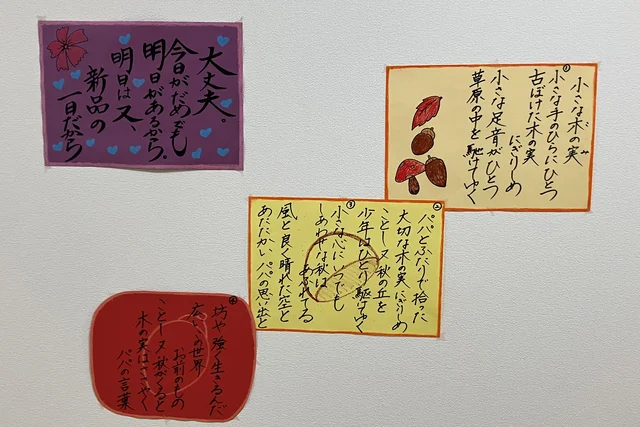 大丈夫。
今日がだめでも
明日があるから。
明日は又、
新品の
一日だから
小さな木の実
み
①
小さな手のひらにひとつ
古ぼけた木の実
にぎりしめ
小さな足音がひとつ
草原の中を駆けてゆく
②
パパとふたりで拾った
大切な木の実にぎりしめ
ことし又秋の丘を
少年はひとり駆けてゆく
③
小さな心に いつでも
しあわせな秋は
あふれてる
風と良く晴れた空と
あたたかいパパの思い出と
④
坊や強く生きるんだ
広いこの世界
お前のもの
ことし又秋がくると
木の実はささやく
パパの言葉